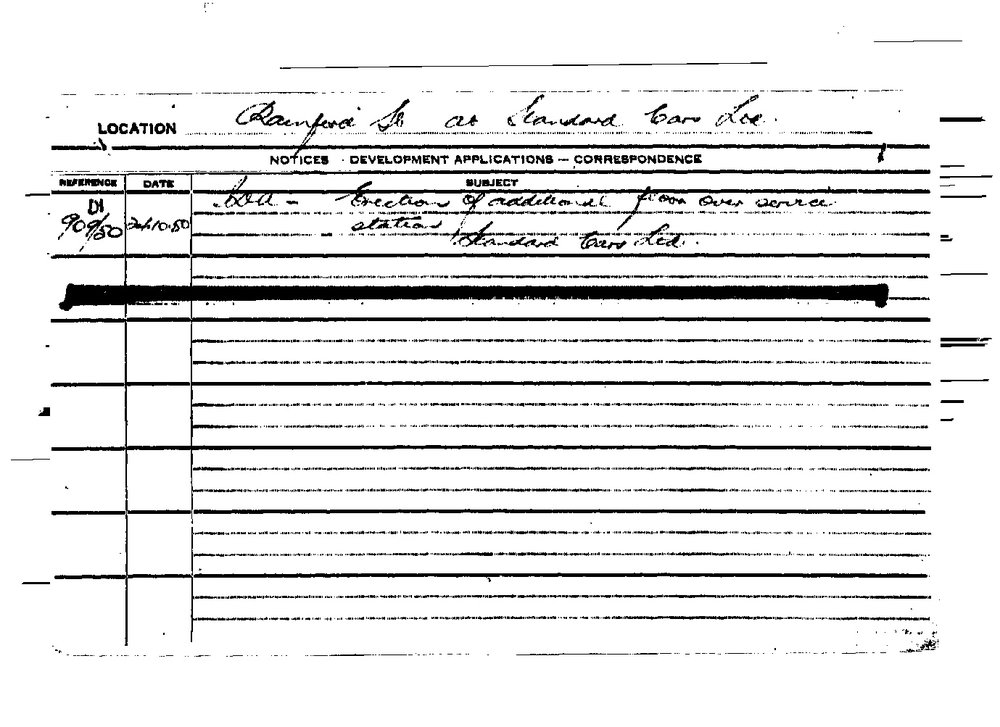 LOCATION Rainford St at Standard Cars Ltd.
NOTICES · DEVELOPMENT APPLICATIONS — CORRESPONDENCE
REFERENCE DATE SUBJECT
D1 - Erection of additional floor over service
909/50 24.10.50 station
Standard Cars Ltd.